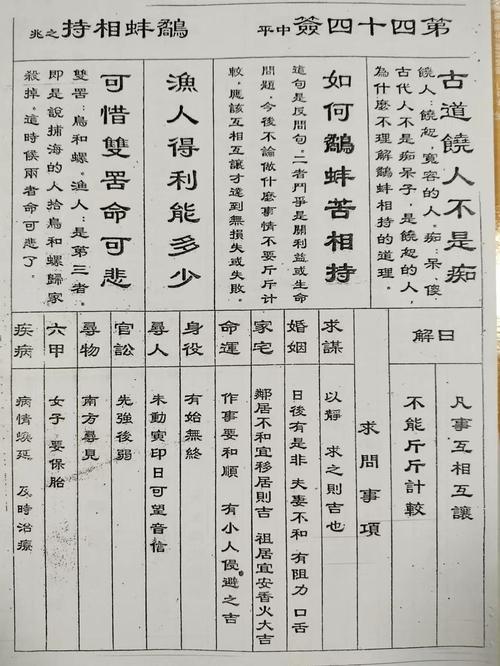 第四十四簽 中平 鷸蚌相持之兆
古道饒人不是痴
饒人：饒恕，寬容的人。痴：呆、傻
古代人不是痴呆子，是饒恕的人，
為什麼不理解鷸蚌相持的道理。
如何鷸蚌苦相持
這句是反問句。二者鬥爭是關利益或生命
問題，今後不論做什麼事情不要斤斤計
較，應該互相互讓才達到無損失或失敗。
漁人得利能多少
可惜雙罟命可悲
雙罟：鳥和螺。漁人：是第三者。
即是說捕海的人拾鳥和螺歸家
殺掉。這時候兩者命可悲了。
解曰
凡事互相互讓
不能斤斤計較
求問事項
求謀
以靜 求之則吉也
婚姻
日後有是非 夫妻不和 有阻力 口舌
家宅
鄰居不和宜移居則吉 祖居宜安香火大吉
命運
作事要和順 有小人侵避之吉
身役
有始無終
尋人
未動寅印日可望音信
官訟
先強後弱
尋物
南方尋見
六甲
女子 要保胎
疾病
病情煥延 及時治療